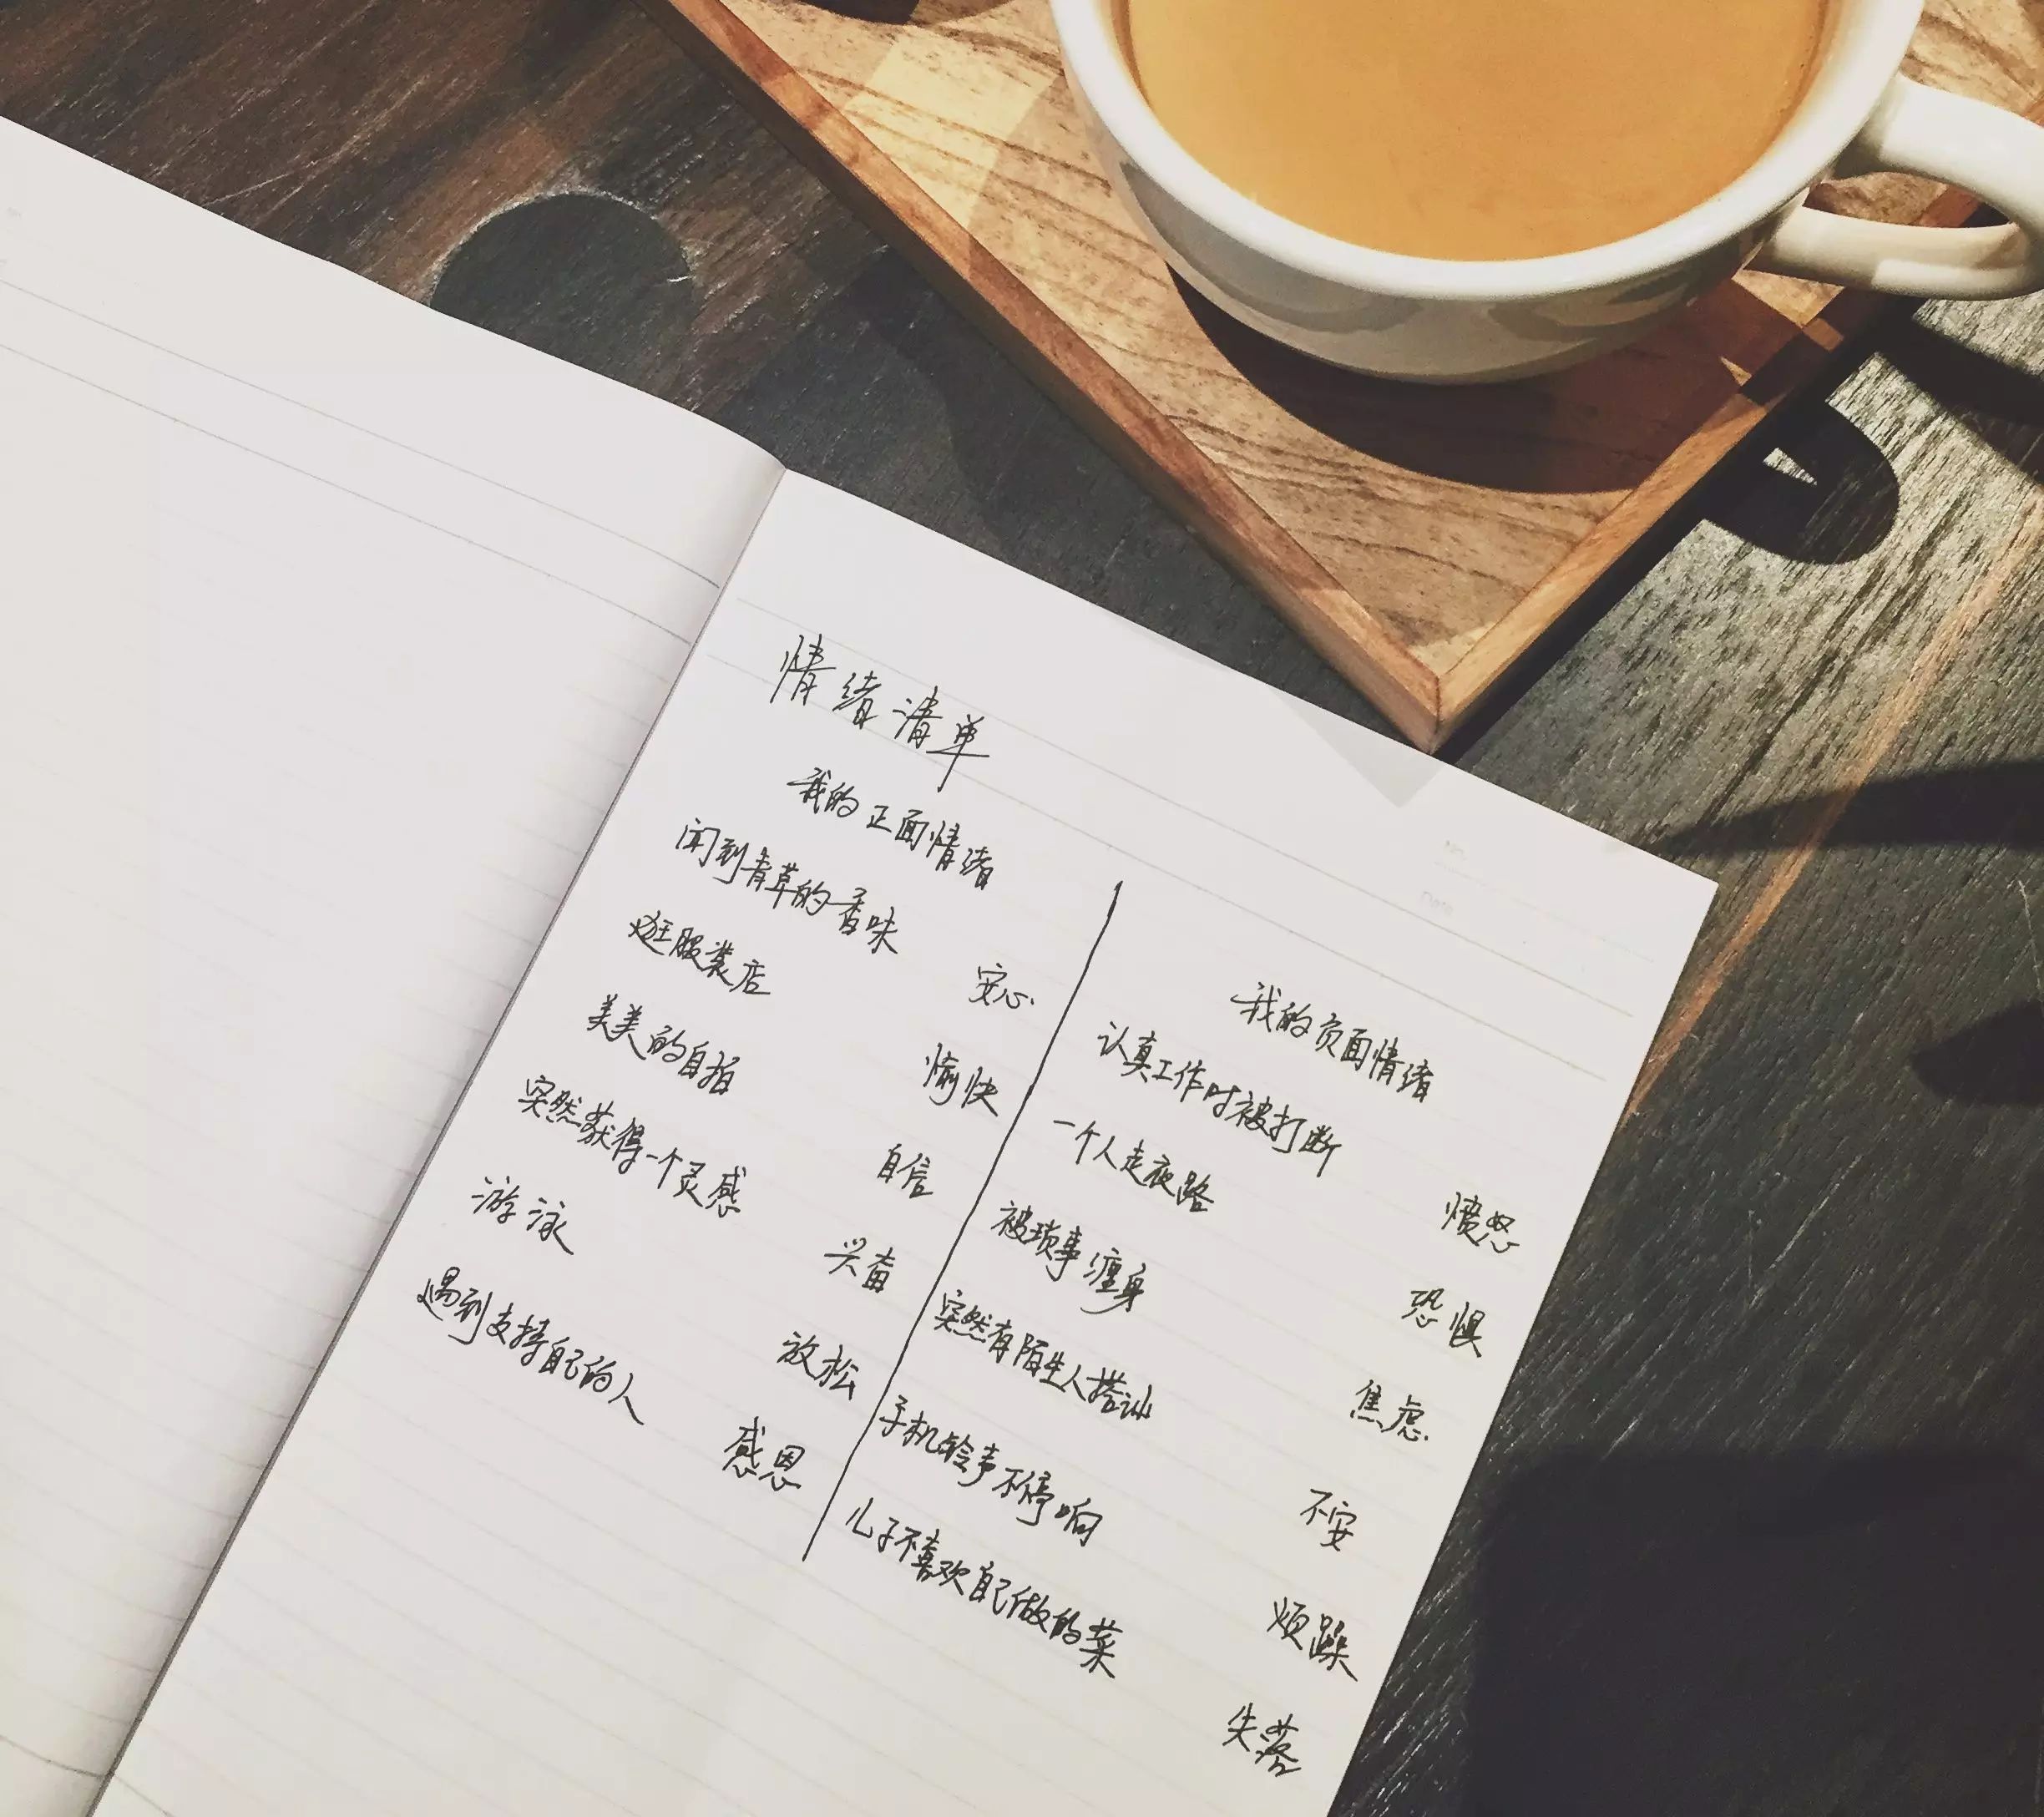 情绪清单
我的正面情绪
闻到青草的香味 安心
逛服装店 愉快
美美的自拍 自信
突然获得一个灵感 兴奋
游泳 放松
遇到支持自己的人 感恩
我的负面情绪
认真工作时被打断 愤怒
一个人走夜路 恐惧
被琐事缠身 焦虑
突然有陌生人搭讪 不安
手机铃声不停响 烦躁
儿子不喜欢自己做的菜 失落
No.
Date